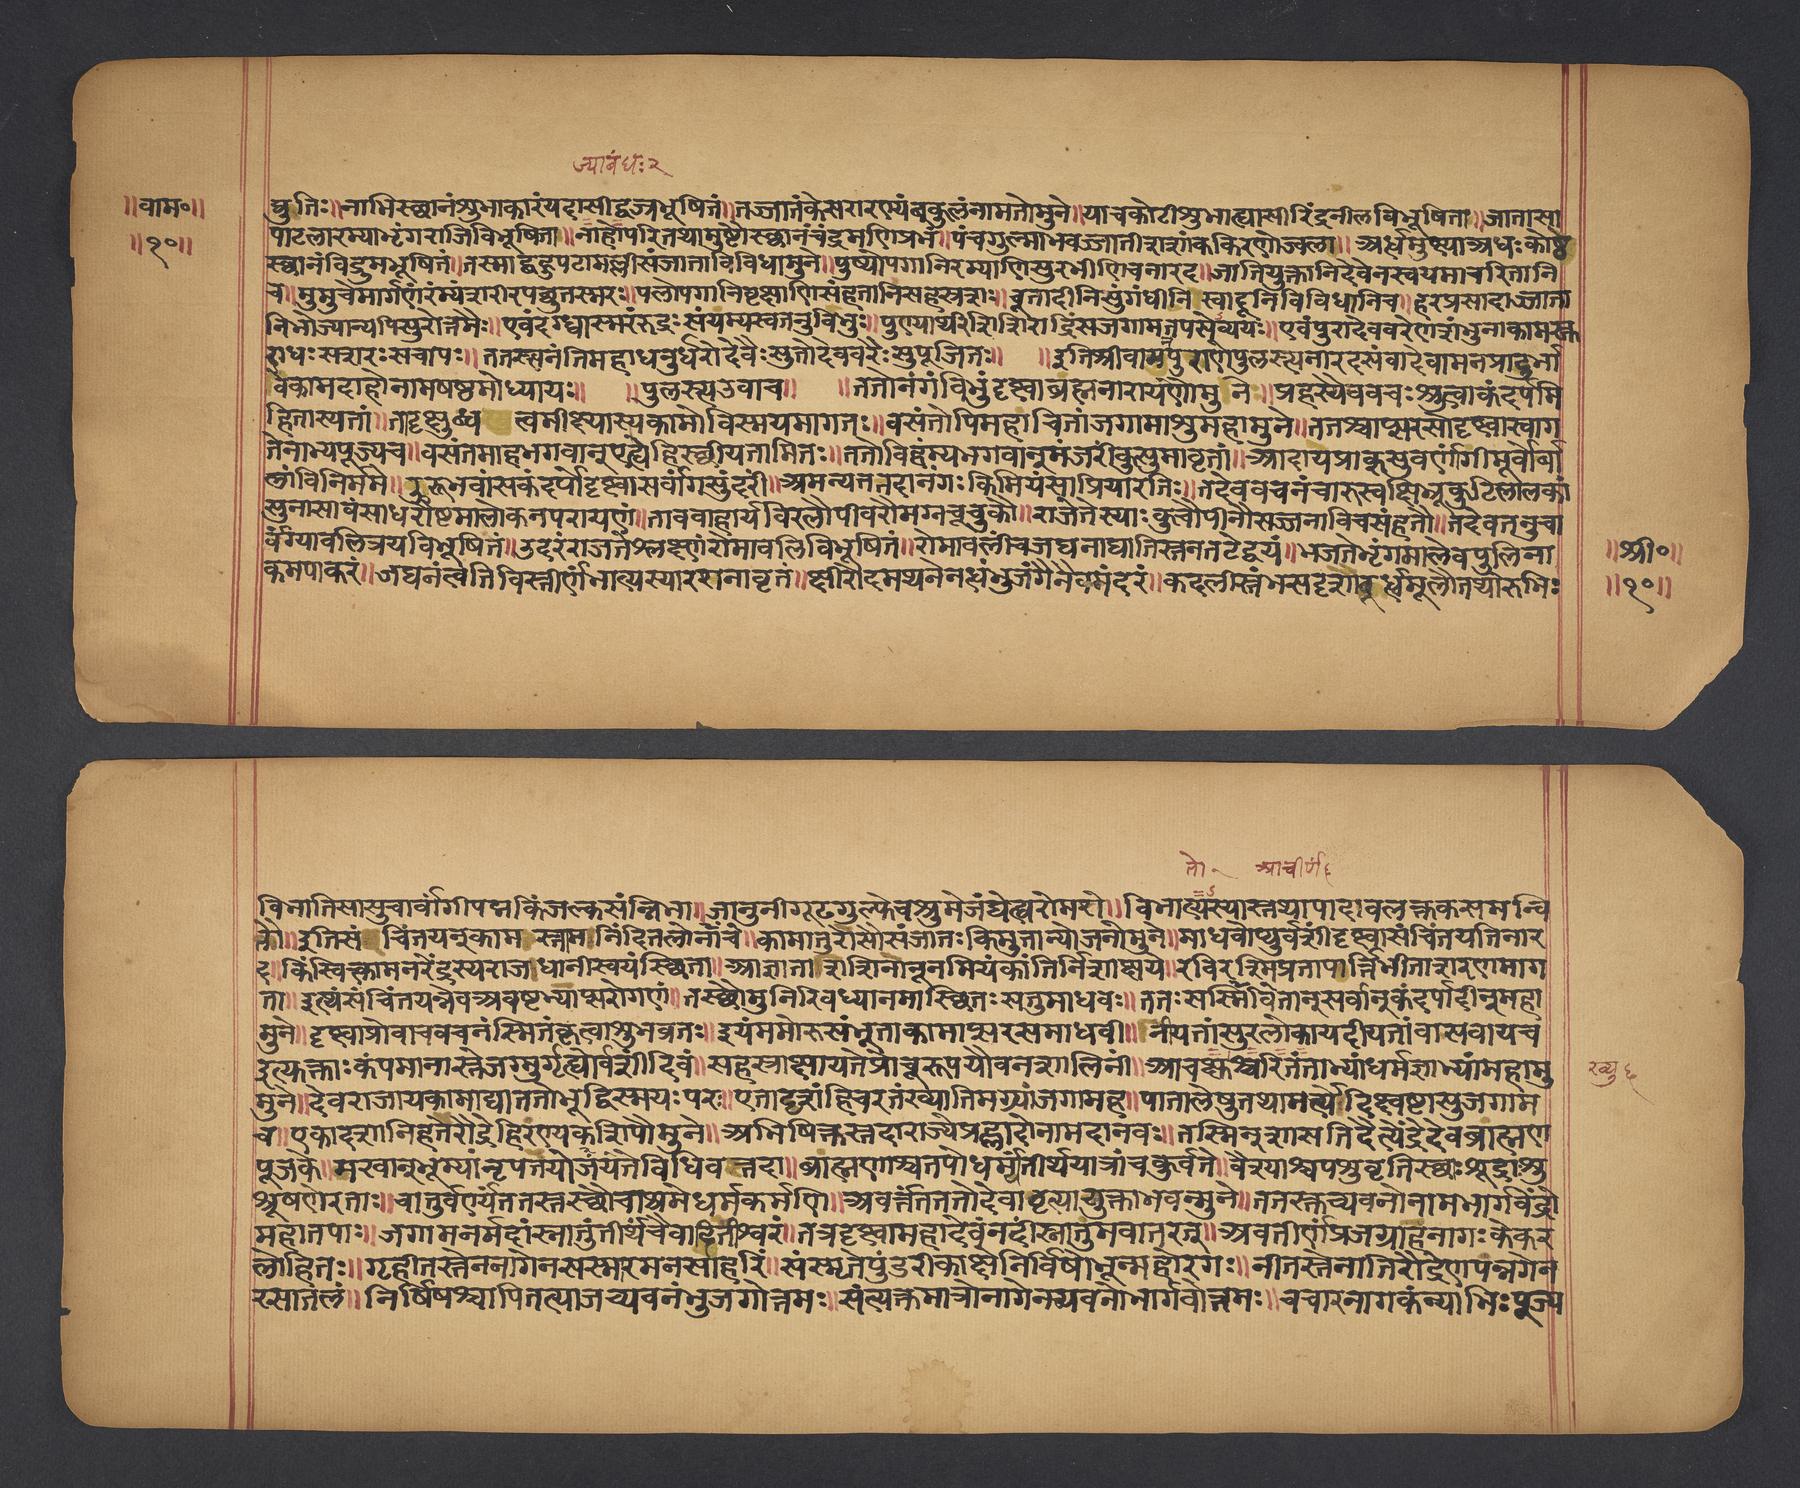 ज्याबंधः२
॥वाम०॥
॥१०॥
द्युतिः॥नाभिस्छानंशुभाकारंयदासीद्वज्रभूषितं॥तज्जातंकेसरारण्यंबकुलंनामतोमुने॥याचकोटीशुभात्द्यासीरिंद्रनीलविभूषिता॥जातासा
पाटलारम्याभृंगराजिविभूषिता॥नाहोपरितथामुष्टौस्छानंचंद्रमणिप्रभं॥पंचगुल्माभवज्जातीशशांककिरणोज्वला॥अर्धमुष्ट्याअधःकोष्ठ
स्छानंविद्रुमभूषितं॥तस्माद्बहुपटामल्लीसंजाताविविधामुने॥पुष्पोपगानिरम्याणिसुरभीणिचनारद॥जातियुक्तानिदेवेनस्वयमाचरितानि
च॥मुमुचेमार्गणंरम्यंशरीरपच्युतस्मरः॥फलोपगानिवृक्षाणिसंहतानिसहस्रशः॥चूतादीनिसुगंधीनिस्वादूनिविविधानिच॥हरप्रसादाज्जाता
निभोज्यान्यपिसुरोत्तमैः॥एवंदग्ध्वास्मरंरुद्रःसंयम्यस्वतनुंविभुः॥पुण्यार्थंशिशिराद्रिंसजगामतपसेव्ययः॥एवंपुरादेववरेणशंभुनाकामस्त
शधःसशरःसचापः॥ततस्त्वनंतेतिमहाधनुर्धरोदेवैःस्तुतोदेववरैःसुपूजितः॥ ॥इतिश्रीवामनपुराणेपुलस्त्यनारदसंवादेवामनप्रादुर्भा
वेकामदाहोनामषष्ठमोध्यायः॥ ॥पुलस्त्यउवाच॥ ॥ततोनंगंविभुंदृष्ट्वाब्रह्मनारायणोमुनिः॥प्रहस्यैवंवचःश्रुत्वाकंदर्पमि
हितास्यतां॥तदक्षुब्धत्वमीक्ष्यास्यकामोविस्मयमागतः॥वसंतोपिमहाचिंतांजगामाशुमहामुने॥ततश्चाप्सरसोदृष्ट्वास्वाग
तेनाभ्यपूज्यच॥वसंतमाहभगवानूएह्येहिस्छीयतामितः॥ततोविहस्यभगवानूमंजरींकुसुमावृतां॥आदायप्राक्सुवर्णांगीमूर्वोर्बा
लांविनिर्ममे॥ऊरूभवांसकंदर्पोदृष्ट्वासर्वांगसुंदरीं॥अमन्यततदानंगःकिमियंसाप्रियारतिः॥तदेववचनंचारुस्वक्षिभ्रूकुटिलालकां
सुनासावंसाधरौष्टमालोकनपरायणं॥तावेवाहार्यविरलौपीवरौमग्नचूचुकौ॥राजेतेस्याःकुचौपीनौसज्जनाविवसंहतौ॥तदेवतनुचा
र्वंग्यावलित्रयविभूषितं॥उदरंराजतेश्लक्ष्णंरोमावलिविभूषितं॥रोमावलीचजघनाद्यातिस्तनतटेद्वयं॥भजतेभृंगमालेवपुलिना
कमपाकरं॥जघनंत्वतिविस्तीर्णंभात्यस्यारसनावृतं॥क्षीरोदमथनेनद्धंभुजंगेनैवमंदरं॥कदलीस्तंभसदृशैरूर्ध्वमूलैतथोरुभिः
॥श्री०॥
॥१०॥
लो २ आचीर्ण६
विभातिसासुचार्वांगीपद्मकिंजल्कसंन्निभा॥जानुनीगूढगुल्फेचशुभेजंघेत्वरोमशे॥विभात्यस्यास्तथापादावलक्तकसमन्वि
तौ॥इतिसंचिंतयन्कामस्तामनिंदितलोचनां॥कामातुरोसौसंजातःकिमुतान्योजनोमुने॥माधवोप्युर्वशींदृष्ट्वासंचिंतयतिनार
द॥किंस्वित्कामनरेंद्रस्यराजधानीस्वयंस्छिता॥आज्ञाताशशिनोनूनमियंकांतिर्निशाक्षये॥रविरश्मिप्रतापार्तिभीताशरणमाग
ता॥इत्थंसंचिंतयन्नेवअवष्टभ्याप्सरोगणं॥तस्छौमुनिरिवध्यानमास्छितःसतुमाधवः॥ततःसस्मितंतान्सर्वान्कंदर्पादीन्महा
मुने॥दृष्ट्वाप्रोवाचवचनंस्मितंकृत्वाशुभव्रतः॥इयंममोरुसंभूताकामाप्सरसमाधवी॥नीयतांसुरलोकायदीयतांवासवायच
इत्युक्ताःकंपमानास्तेजग्मुर्गृह्योर्वशींदिवं॥सहस्राक्षायतेप्रोचूरूपयौवनशालिनीं॥आचष्टश्चरितंताभ्यांधर्मजाभ्यांमहामु
ख्यु६
मुने॥देवराजायकामाद्यास्ततोभूद्विस्मयःपरः॥एतादृशंहिचरतंख्यातिमग्र्यांजगामह॥पातालेषुतथामर्त्येदिक्ष्वष्टासुजगाम
च॥एकादशानिहतेरौद्रेहिरण्यकशिपौमुने॥अभिषिक्तस्तदाराज्येप्रह्लादोनामदानवः॥तस्मिन्शासतिदैत्येंद्रेदेवब्राह्मण
पूजके॥मखान्भूम्यांनृपतयोजयंतेविधिवत्तदा॥ब्राह्मणाश्चतपोधर्मंतीर्थयात्रांचकुर्वते॥वैश्याश्चपशुवृतिस्छाःशूद्राःशु
श्रूषणेरताः॥चातुर्वर्ण्यंततस्तस्छौचाश्रमेधर्मकर्मणि॥अवर्त्ततततोदेवावृत्यायुक्ताभवन्मुने॥ततस्तच्यवनोनामभार्गवेंद्रो
महातपाः॥जगामनर्मदांस्नातुंतीर्थंचैवाहितीश्वरं॥तत्रदृष्ट्वामहादेवंनदींस्नातुमवातरत्॥अवतीर्णंप्रजग्राहनागःकेकर
लोहितः॥गृहीतस्तेननागेनसस्मारमनसाहरिं॥संस्मृतेपुंडरीकाक्षेनिर्विषोभून्महोरगः॥नीतस्तेनातिरौद्रेणपन्नगेन
रसातलं॥निर्षिषश्चापितत्याजच्यवनंभुजगोत्तमः॥संत्यक्तमात्रोनागेनच्यवनोभार्गवोत्तमः॥चचारनागकन्याभिःपूज्य